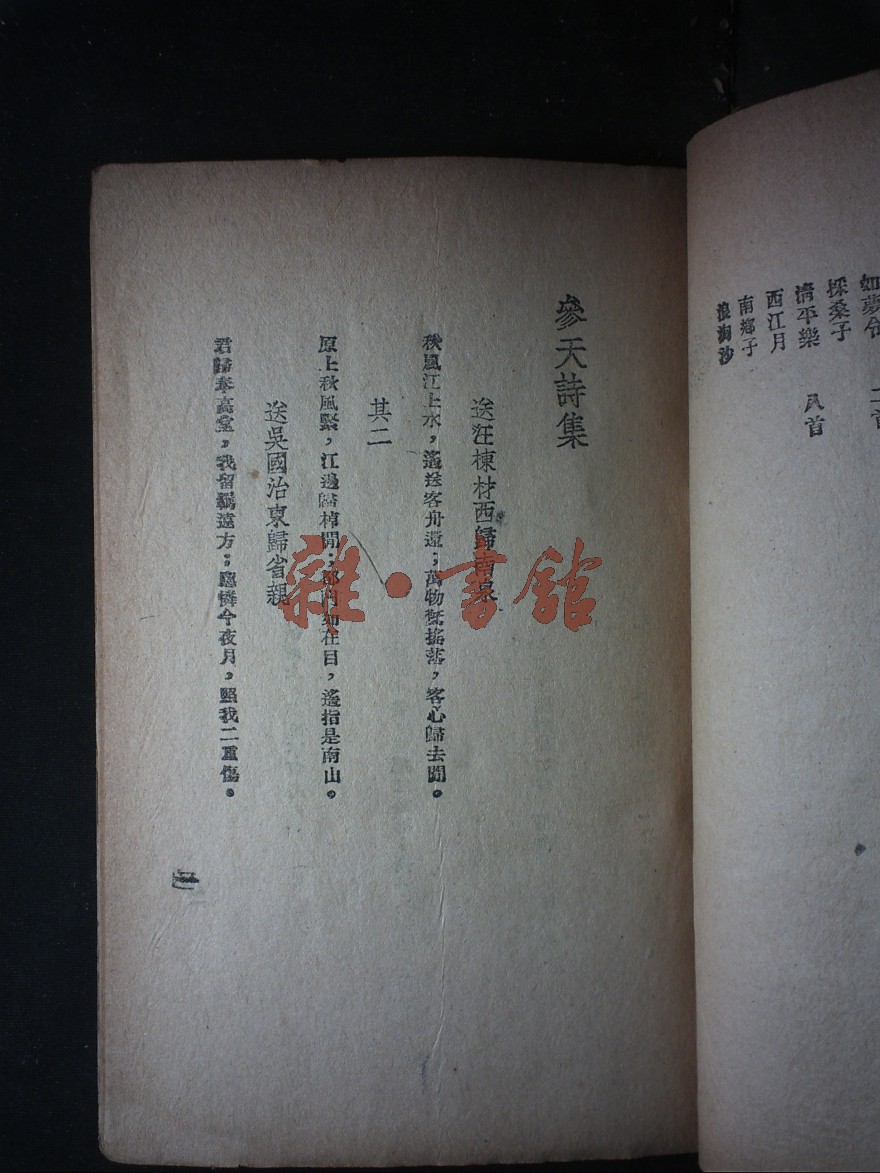 如夢令 二首
採桑子
清平樂 八首
西江月
南鄉子
浪淘沙
參天詩集
送汪棟材西歸南泉
秋風江上水，遙送客舟還；萬物驚搖落，客心歸去閒。
其二
原上秋風緊，江邊歸棹閒；都門如在目，遙指是南山。
送吳國治東歸省親
君歸奉高堂，我留羈遠方；應憐今夜月，照我二重傷。
一
雜·書館